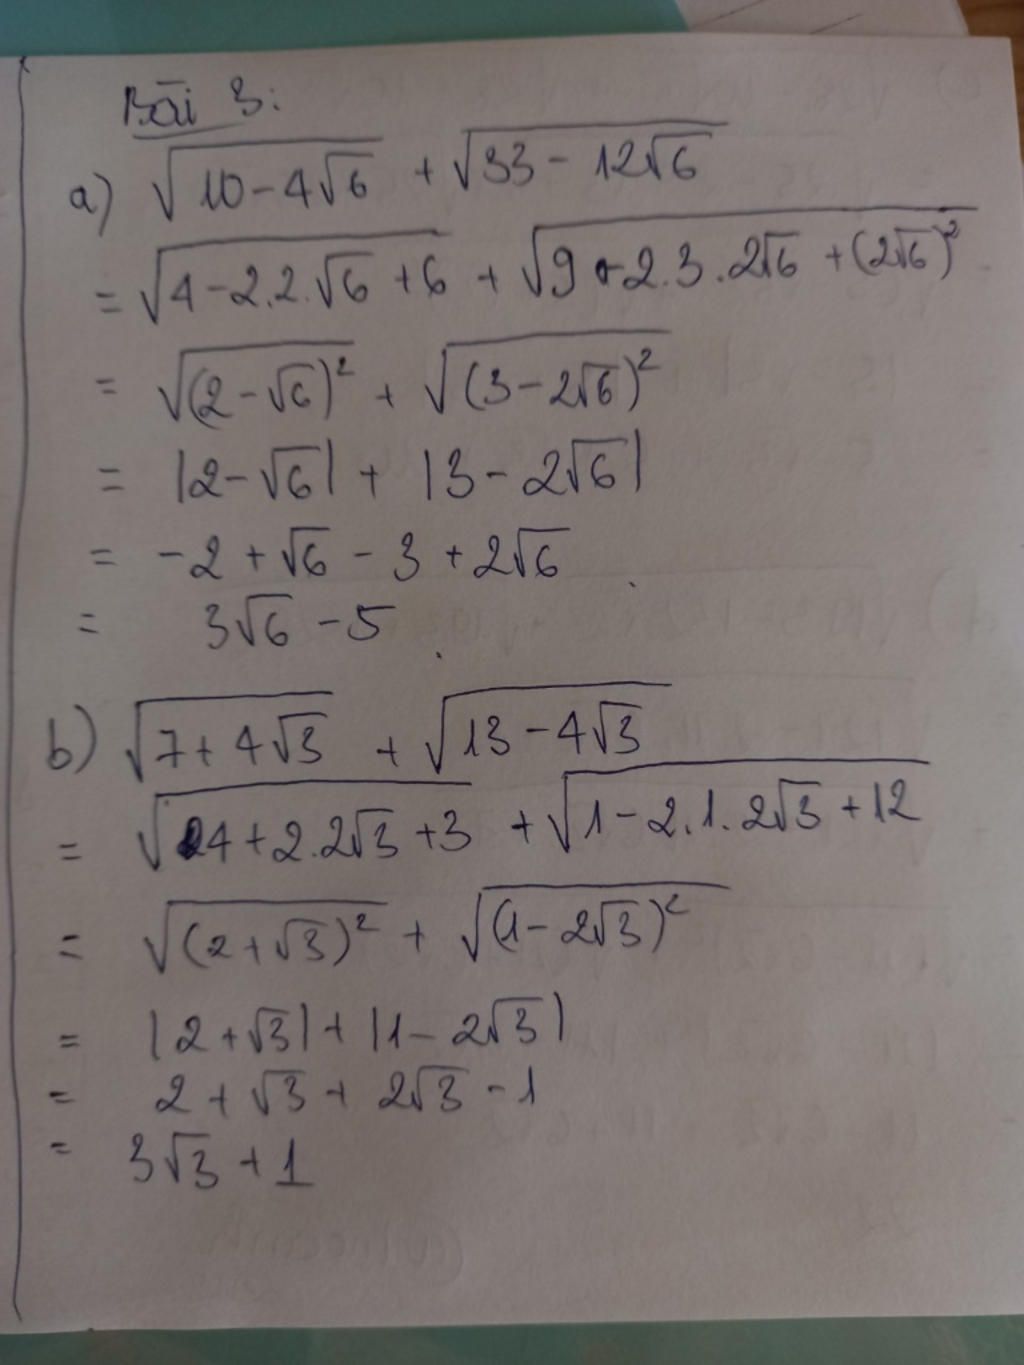 Bài 3:
a) √(10 - 4√6) + √(33 - 12√6)
= √(4 - 2.2.√6 + 6) + √(9 - 2.3.2√6 + (2√6)²)
= √((2 - √6)²) + √((3 - 2√6)²)
= |2 - √6| + |3 - 2√6|
= -2 + √6 - 3 + 2√6
= 3√6 - 5
b) √(7 + 4√3) + √(13 - 4√3)
= √(4 + 2.2√3 + 3) + √(1 - 2.1.2√3 + 12)
= √((2 + √3)²) + √((1 - 2√3)²)
= |2 + √3| + |1 - 2√3|
= 2 + √3 + 2√3 - 1
= 3√3 + 1